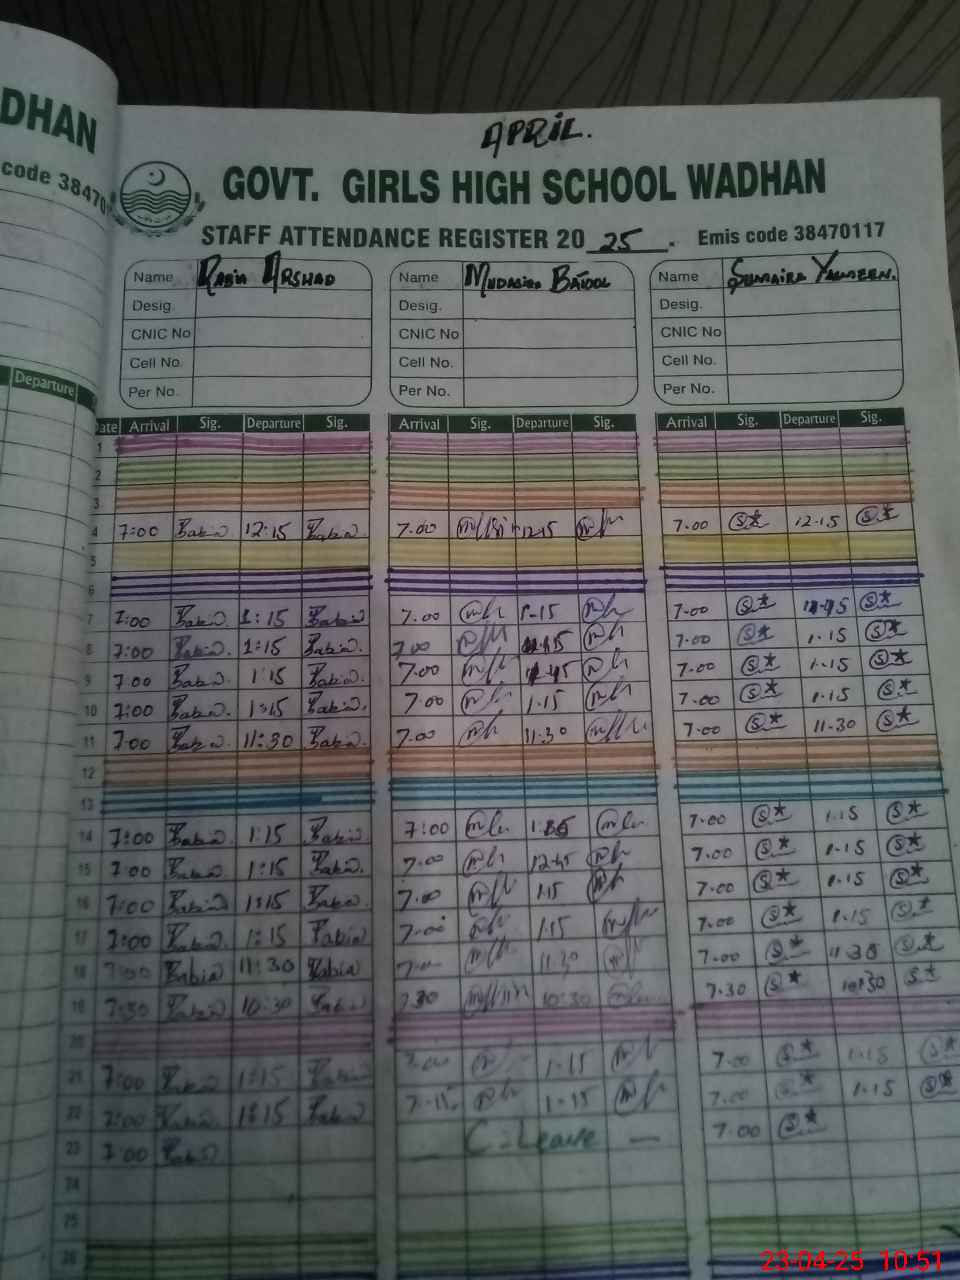 APRIL.
DHAN
code 38470
GOVT. GIRLS HIGH SCHOOL WADHAN
STAFF ATTENDANCE REGISTER 20 25 . Emis code 38470117
Name Rabia Arshad Name Mudasira Batool Name Sumaira Yasmeen.
Desig. Desig. Desig.
CNIC No CNIC No CNIC No
Cell No. Cell No. Cell No.
Per No. Per No. Per No.
Departure
Date Arrival Sig. Departure Sig. Arrival Sig. Departure Sig. Arrival Sig. Departure Sig.
1
2
3
4 7:00 Rabia 12:15 Rabia. 7.00 12.15 7.00 12.15
5
6
7 7:00 Rabia. 1:15 Rabia 7.00 1.15 7.00
8 7:00 Rabia. 1:15 Rabia. 7.00 7.00 1.15
9 7.00 Rabia. 1:15 Rabia. 7.00 7.00 1.15
10 7:00 Rabia. 1:15 Rabia. 7.00 1.15 7.00 1.15
11 7:00 Rabia. 11:30 Rabia. 7.00 11.30 7.00 11.30
12
13
14 7:00 Rabia 1:15 Rabia 7:00 7.00 1.15
15 7:00 Rabia 1:15 Rabia. 7.00 12.45 7.00 1.15
16 7:00 Rabia 1:15 Rabia. 7.00 1.15 7.00 1.15
17 7:00 Rabia. 1:15 Rabia 7.00 1.15 7.00 1.15
18 7:00 Rabia 11:30 Rabia 7.00 11.30 7.00 11.30
19 7:30 Rabia 10:30 Rabia 7.30 10:30 7.30 10.30
20
21 7:00 Rabia 1:15 Rabia 7.00 1.15 7.00 1.15
22 7:00 Rabia 1:15 Rabia 7.15. 1.15 7.00 1.15
23 7:00 Rabia C-Leave 7.00
24
25
26
23-04-25 10:51